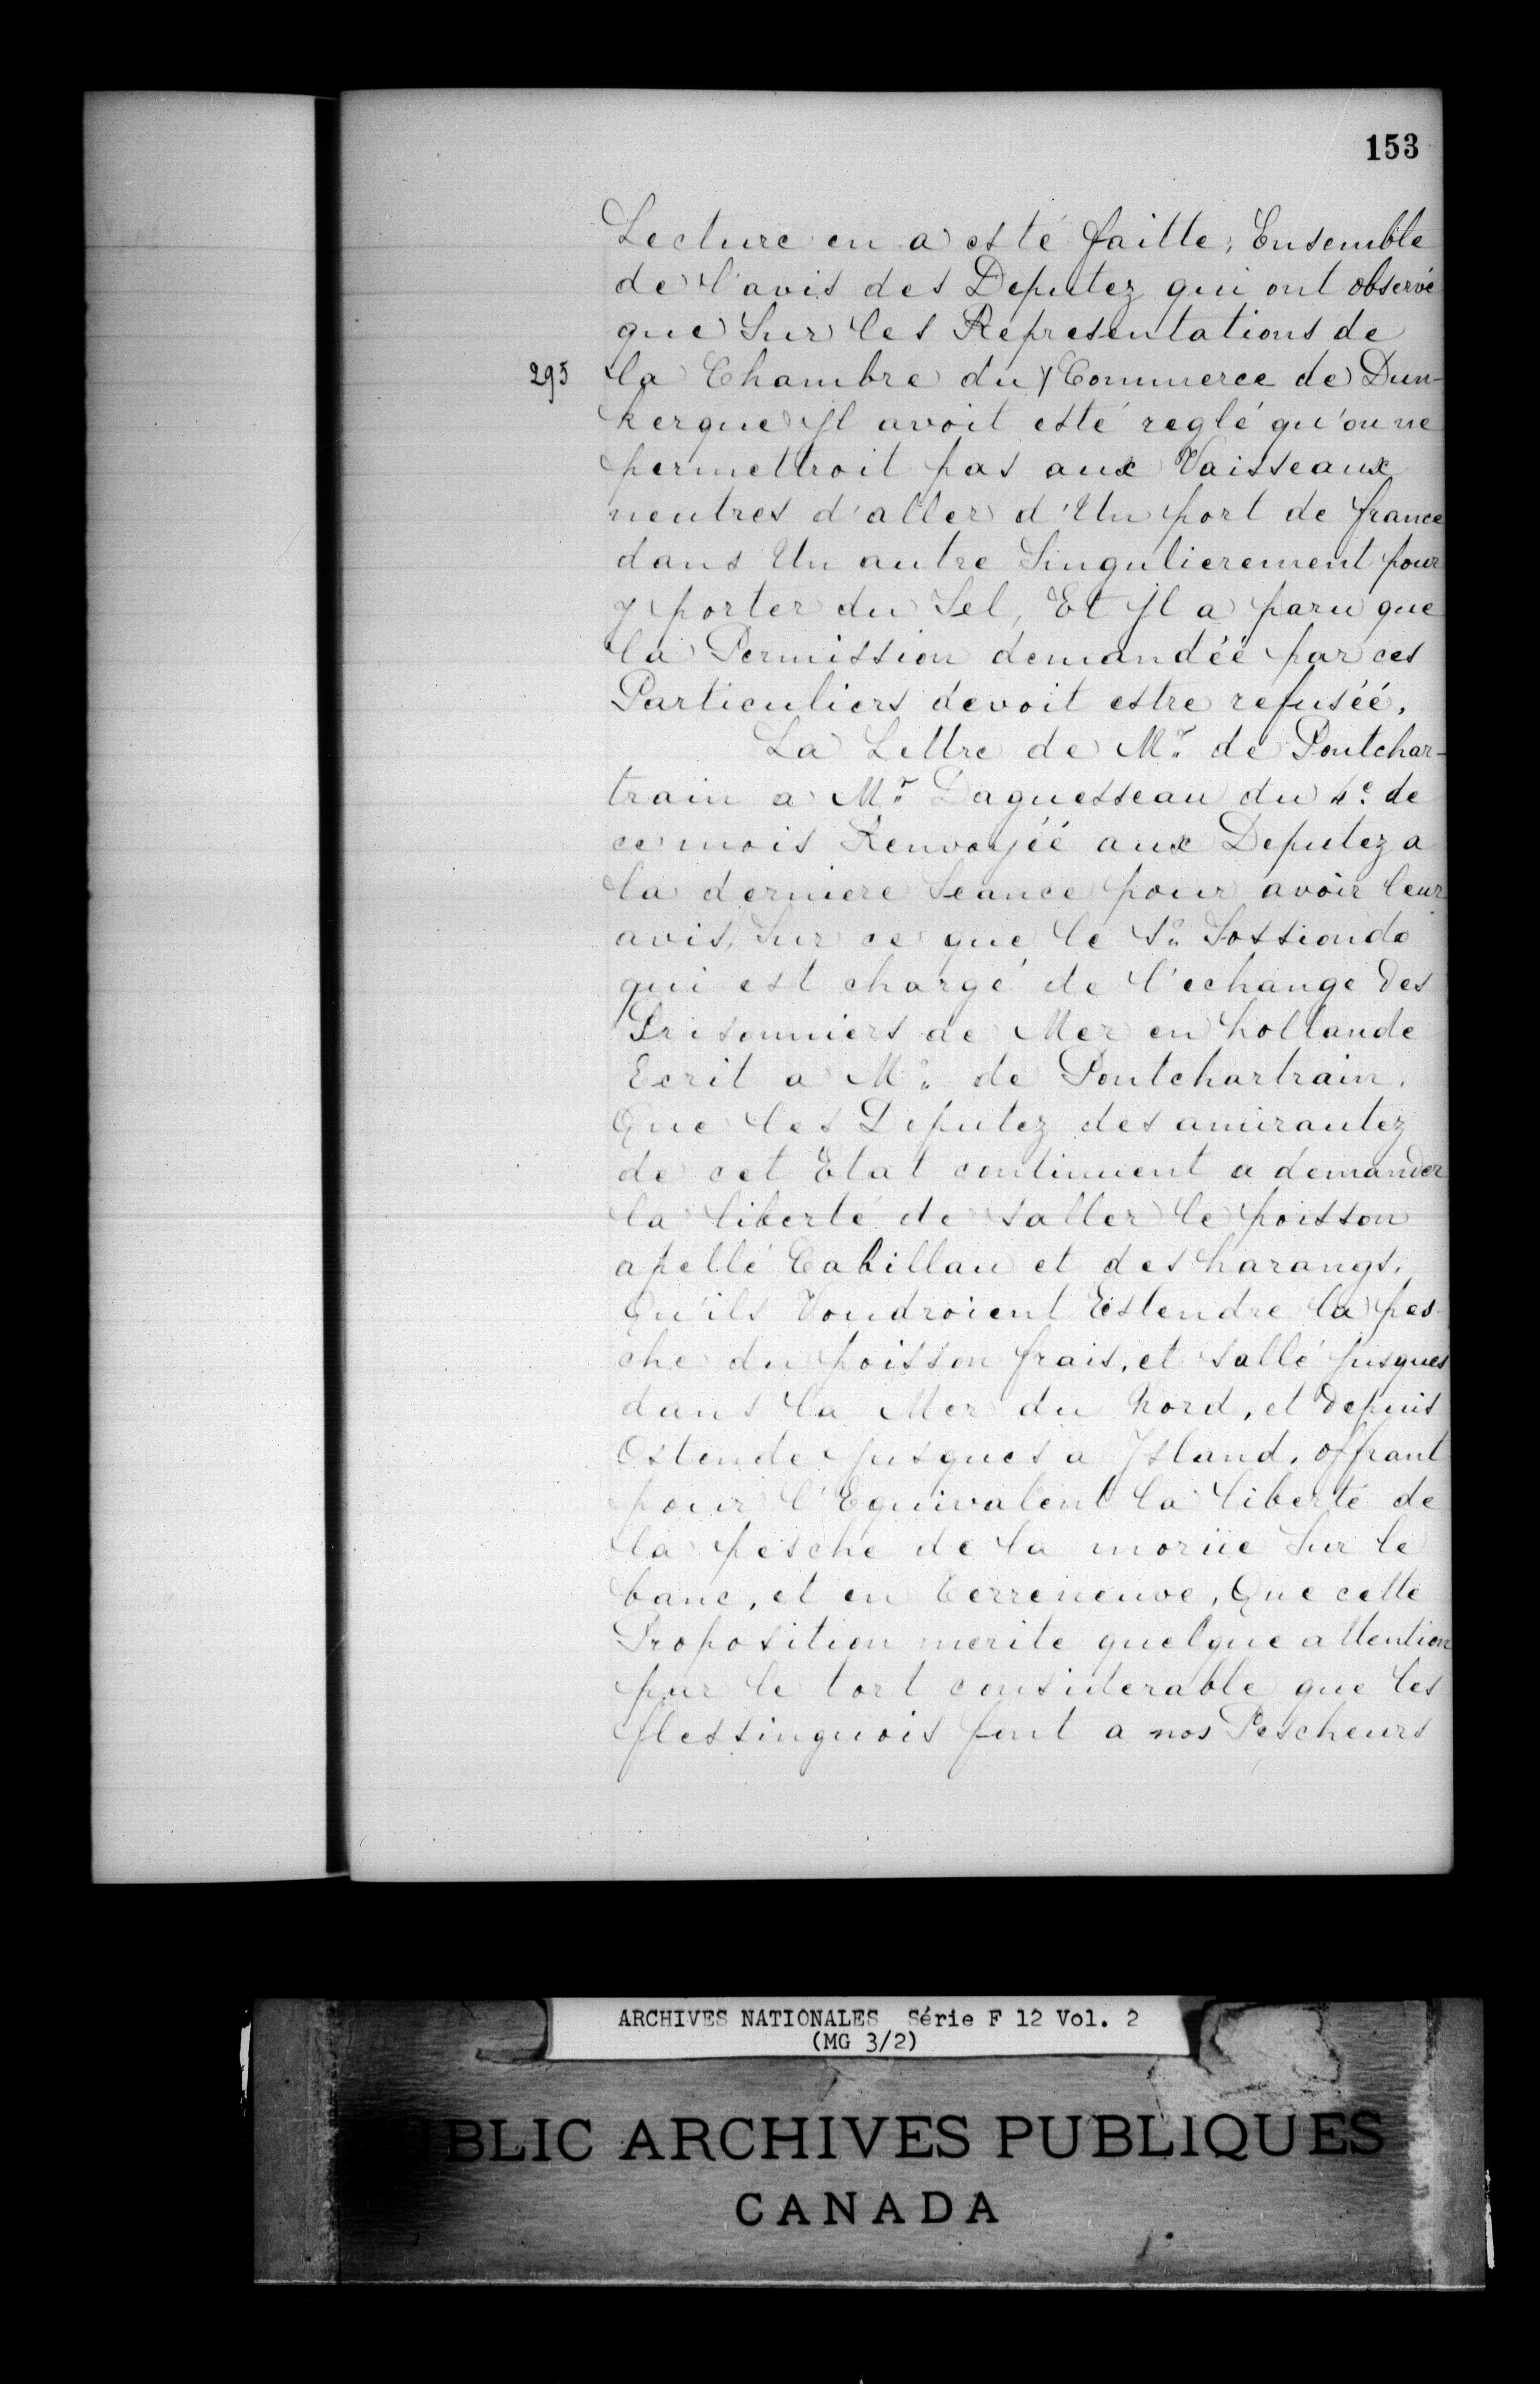 153
Lecture en a esté faitte, Ensemble
de l'avis des Deputez qui ont observé
que Sur les Representations de
295 la Chambre du / Commerce de Dun-
kerque Jl avoit esté reglé qu'on ne
permettroit pas aux Vaisseaux
neutres d'aller d'Un port de france
dans Un autre Singulierement pour
y porter du Sel, Et Jl a paru que
la Permission demandéé par ces
Particuliers devoit estre refuséé.
La Lettre de Mr. de Pontchar-
train a Mr. Daguesseau du 4e. de
ce mois Renvoyéé aux Deputez a
la derniere Seance pour avoir leur
avis, Sur ce que le Sr. Sossiondo
qui est chargé de l'echange des
Prisonniers de Mer en hollande
Ecrit a Mr. de Pontchartrain,
Que les Deputez des amirautez
de cet Etat continuent a demander
la liberté de saller le poisson
apellé Cabillau et des harangs,
Qu'ils Voudroient Estendre la pes-
che du poisson frais, et sallé jusques
dans la Mer du Nord, et Depuis
Ostende jusques a Jsland, offrant
pour l'Equivalent la liberté de
la pesche de la moriie Sur le
banc, et en terreneuve, Que cette
Proposition merite quelque attention
par le tort considerable que les
flessinguois font a nos Pescheurs
ARCHIVES NATIONALES Série F 12 Vol. 2
(MG 3/2)
BLIC ARCHIVES PUBLIQUES
CANADA